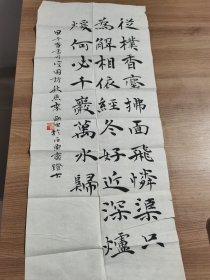 從樸香塵拂面飛憐渠只
為解相依經冬好近深爐
暖何必千巖萬水歸
甲午